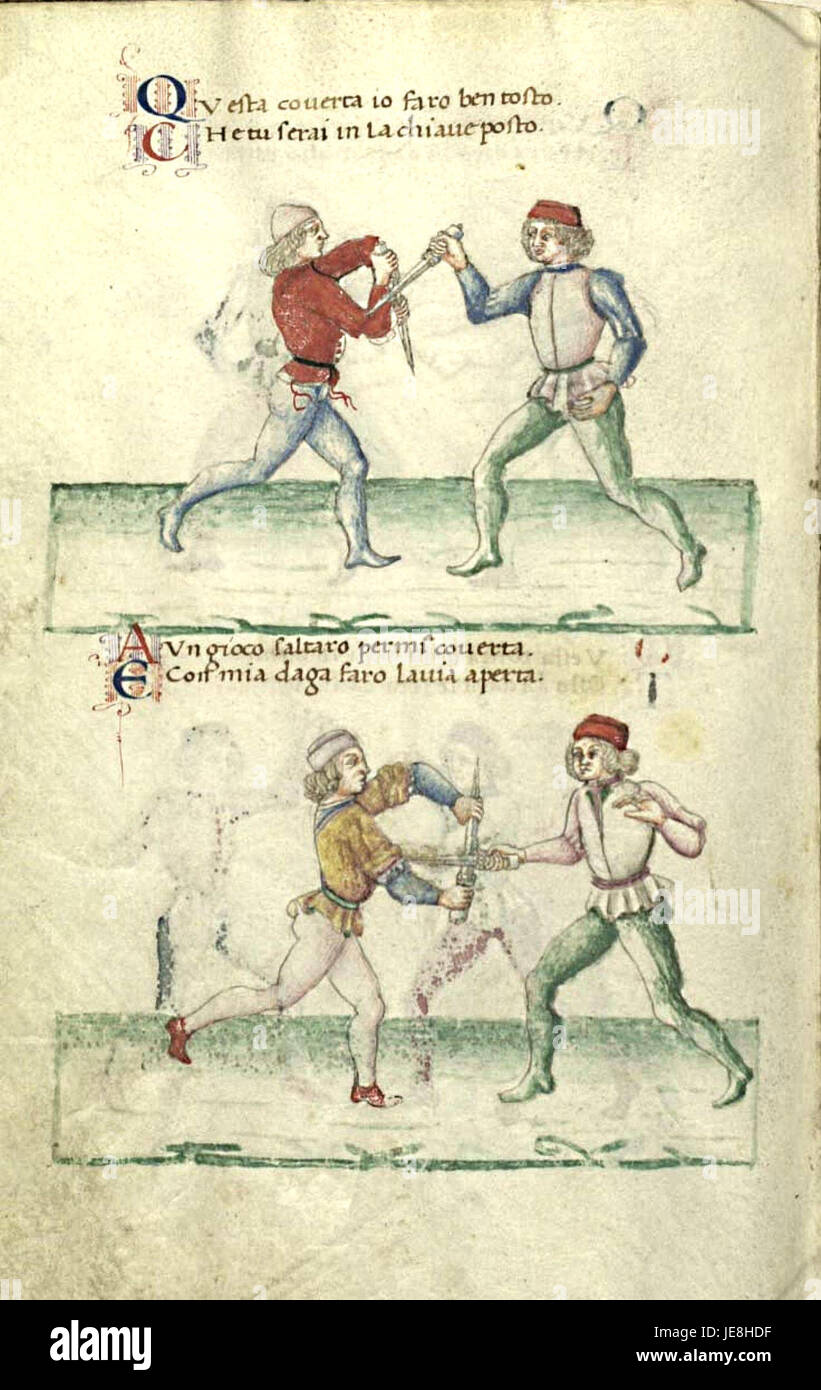 QVesta coverta io faro ben tosto.
CHe tu serai in la chiave posto.
AVn gioco saltaro per mis coverta.
E Coss mia daga faro la via aperta.
alamy
alamy
alamy
alamy
a
a
alamy stock photo
JE8HDF
www.alamy.com